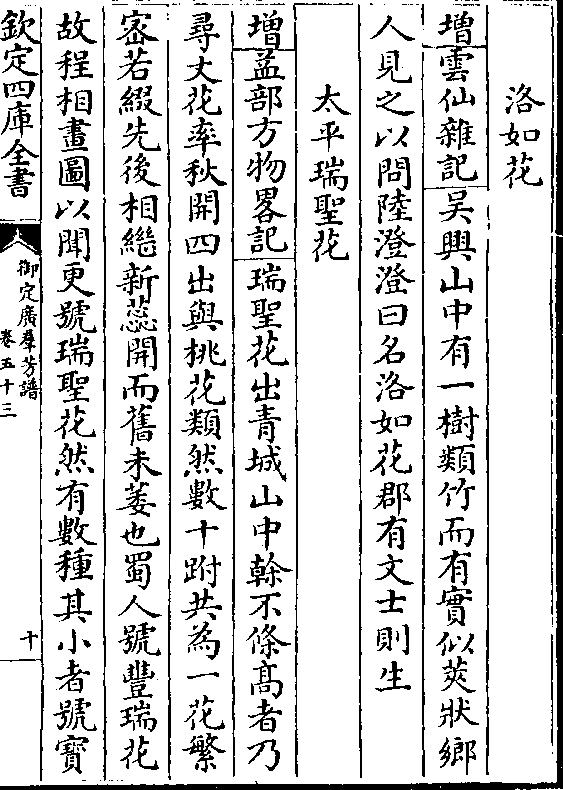 洛如花
增雲仙雜記吳興山中有一樹類竹而有實似莢狀鄉
人見之以問陸澄澄曰名洛如花郡有文士則生
太平瑞聖花
增益部方物畧記瑞聖花出青城山中榦不條髙者乃
尋丈花率秋開四出與桃花類然數十跗共為一花繁
宻若綴先後相繼新蕊開而舊未萎也蜀人號豐瑞花
故程相畫圖以聞更號瑞聖花然有數種其小者號寳
欽定四庫全書
御定廣羣芳譜
卷五十三
十